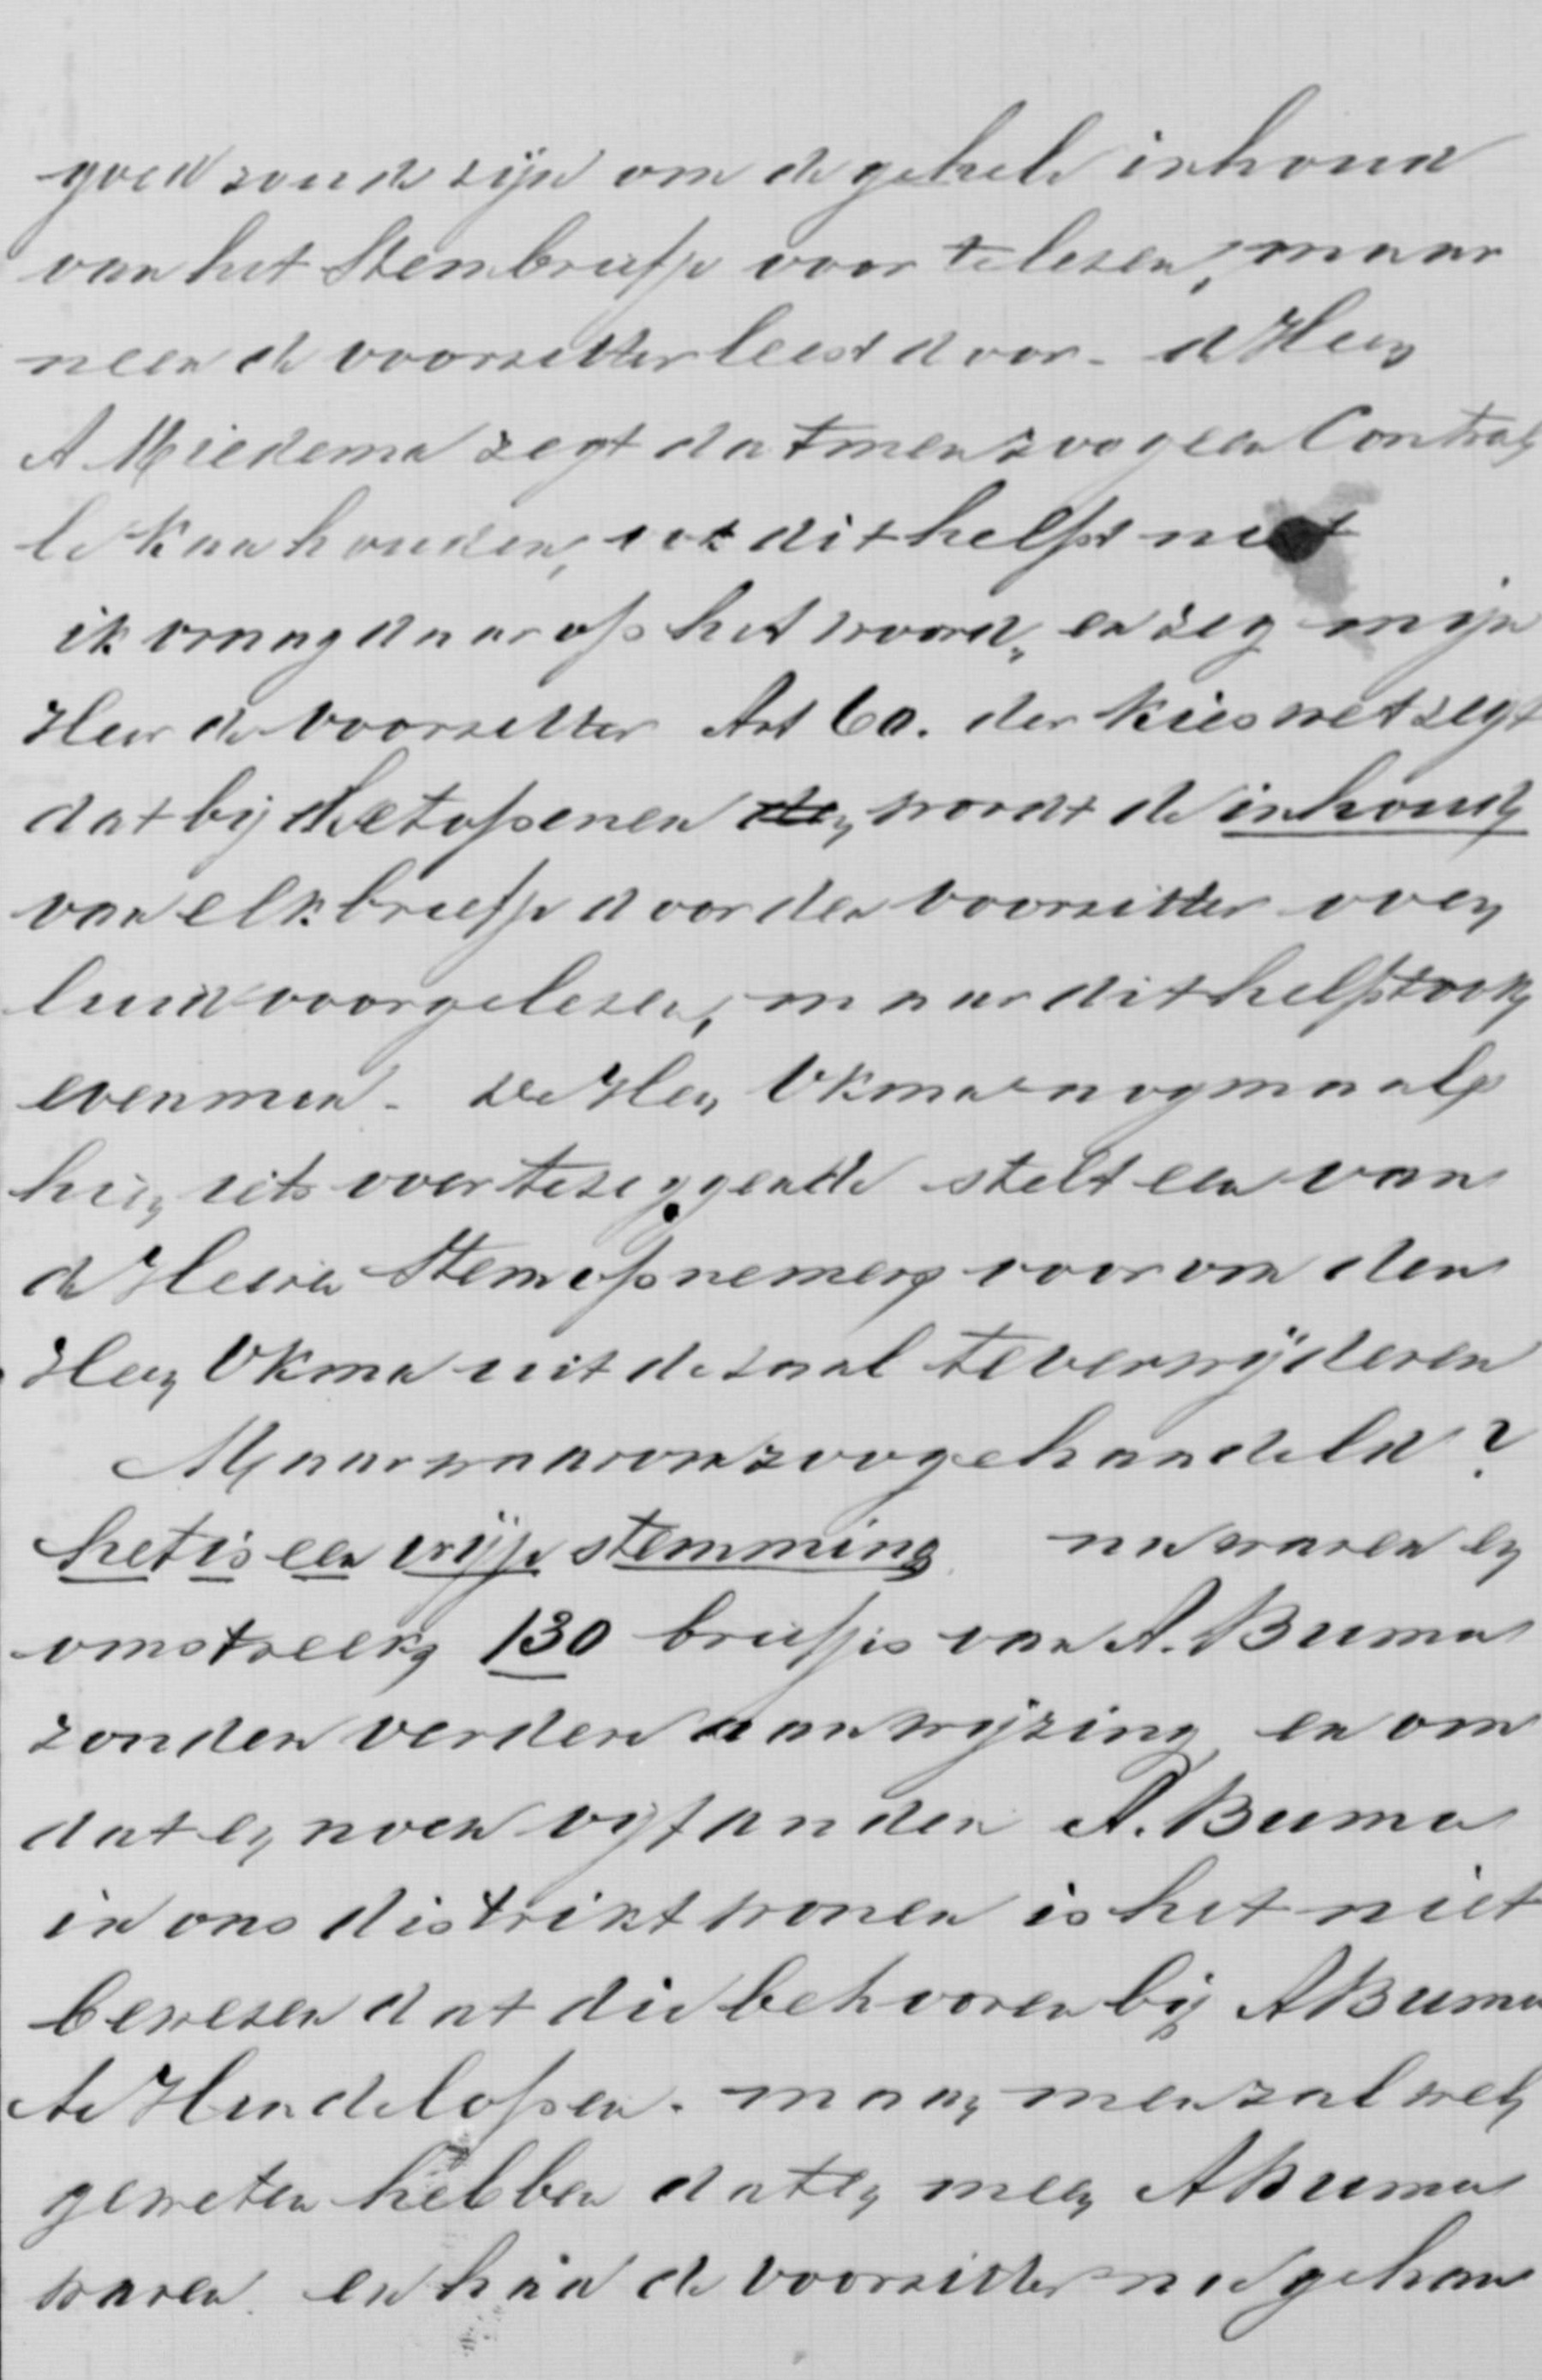 goed zoude zijn om de geheele inhoud
van het Stembriefje voor te lezen, maar
neen de voorzitter leest door. de Heer
A Miedema zegt dat men zoo geen Control
le kan houden, ook dit helpt niet
ik vraag daarop het woord, en zeg mijn
Heer de voorzitter Art 60. der kieswet zegt
dat bij het openen der, wordt de inhoud
van elk briefje door den voorzitter over
luid voorgelezen, maar dit helpt ook
evenmin. De Heer Ukma nogmaals
hier iets over te zeggende stelt een van
de Heeren Stemopnemers voor om den
Heer Ukma uit de zaal te verwijderen
Maar waarom zoo gehandeld?
het is een vrije stemming nu waren er
omstreeks 130 briefjes van A. Buma
zonder verdere aanwijzing en om
dat er noch vijf anderen A. Buma
in ons distrikt wonen is het niet
bewezen dat die behooren bij A Buma
te Hindelopen. maar men zal wel
geweten hebben dat er meer A Buma
waren en had de voorzitter nu gehan